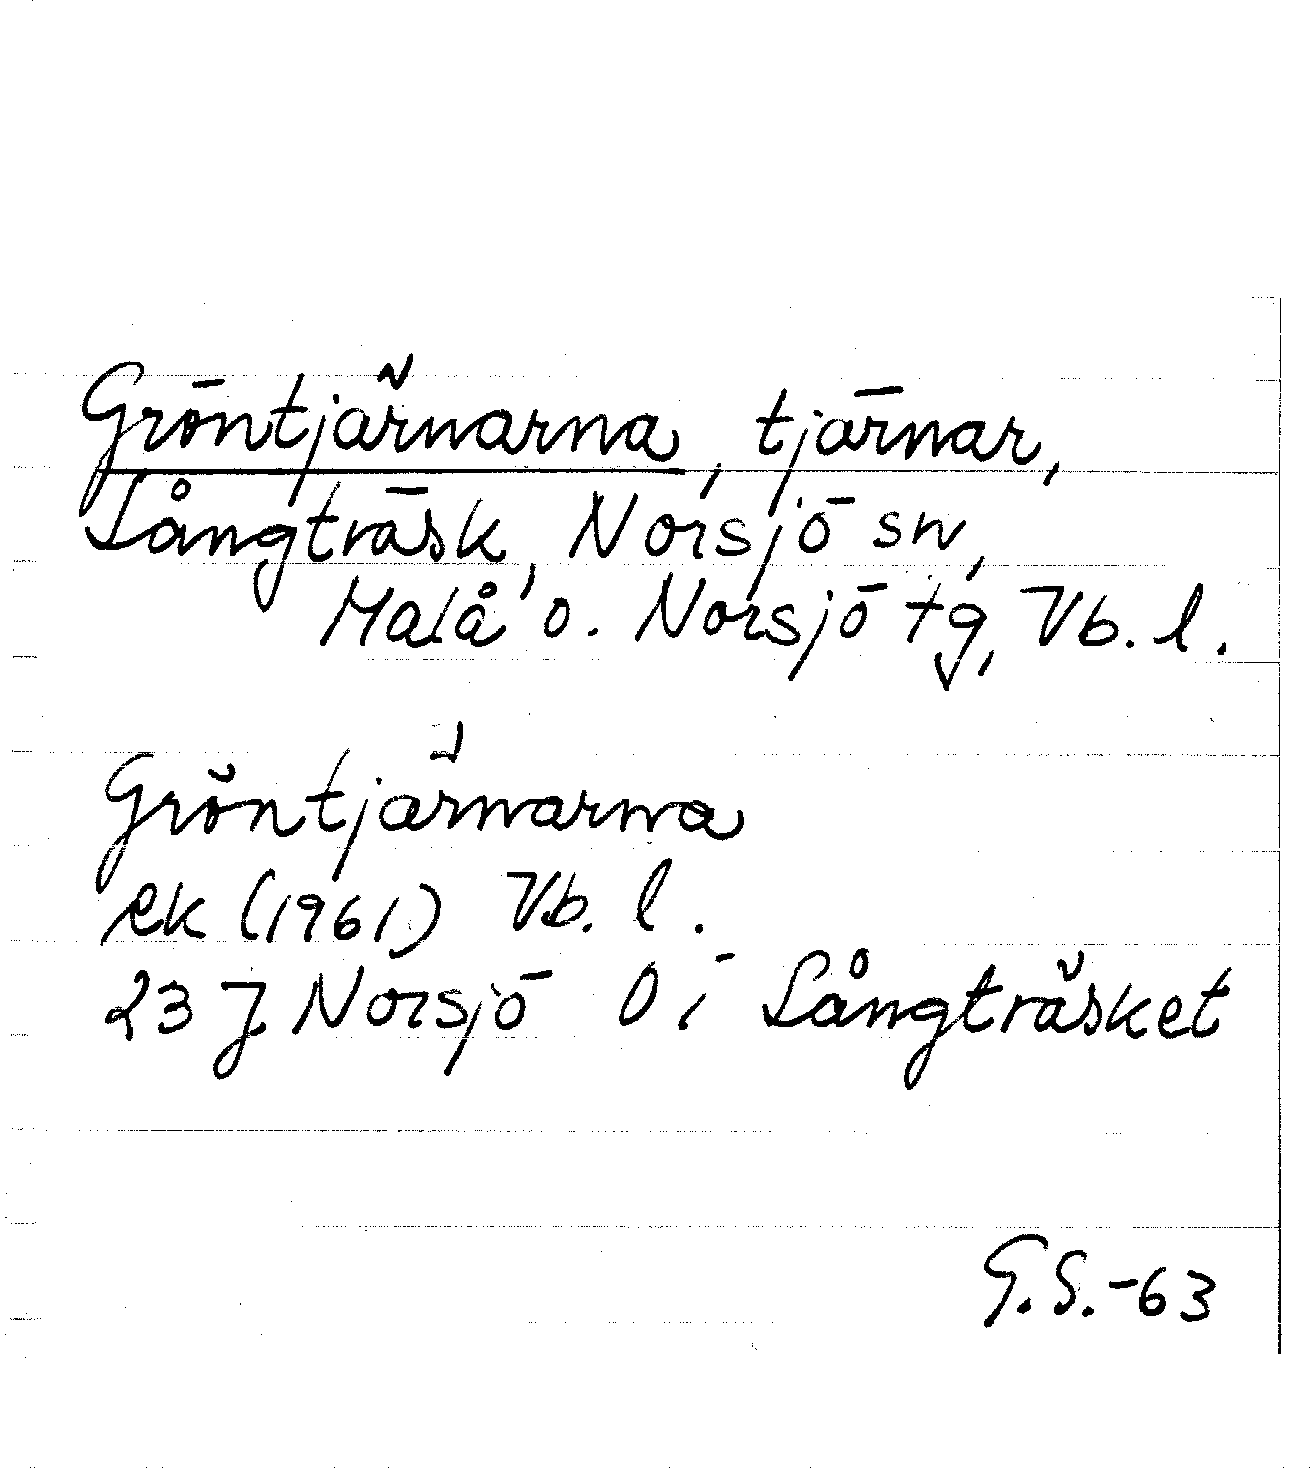 Gröntjärnarna, tjärnar,
Långträsk, Norsjö sn,
Malå o. Norsjö tg, Vb. l.
Gröntjärnarna
ek (1961) Vb. l.
23 J Norsjö O i Långträsket
G.S.-63